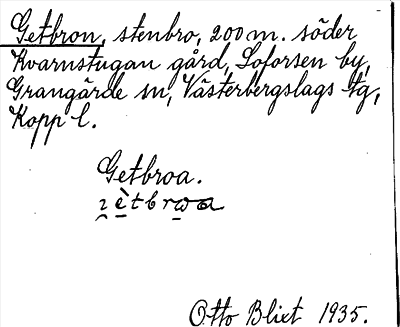 Getbron, stenbro, 200 m. söder
Kvarnstugan gård, Loforsen by,
Grangärde sn, Västerbergslags tg,
Kopp l.
Getbroa.
Otto Blixt 1935.